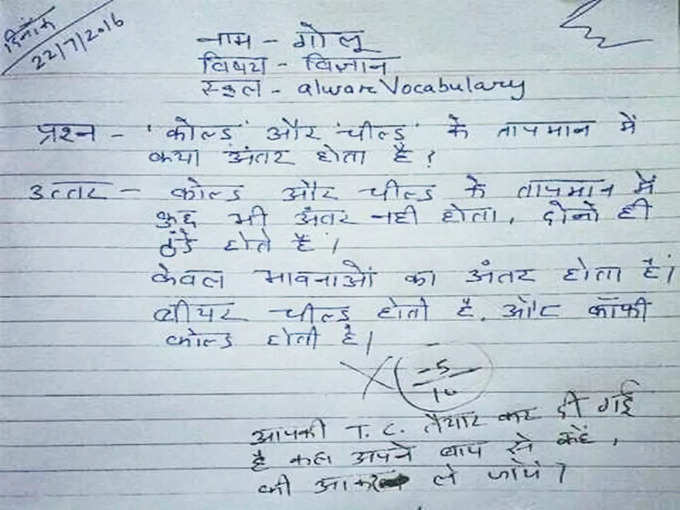 दिनांक
22/7/2016
नाम - गोलू
विषय - विज्ञान
स्कूल - alwareVocabulary
प्रश्न - 'कोल्ड' और 'चील्ड' के तापमान में
क्या अंतर होता है ?
उत्तर - कोल्ड और चील्ड के तापमान में
कुछ भी अंतर नही होता, दोनो ही
ठंडे होते है।
केवल भावनाओं का अंतर होता है।
बीयर चील्ड होती है, और कॉफी
कोल्ड होती है।
-5
10
आपकी T.C. तैयार कर दी गई
है कल अपने बाप से कहें,
की आकर ले जाये।